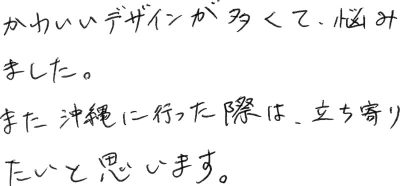 かわいいデザインが多くて、悩み
ました。
また沖縄に行った際は、立ち寄り
たいと思います。